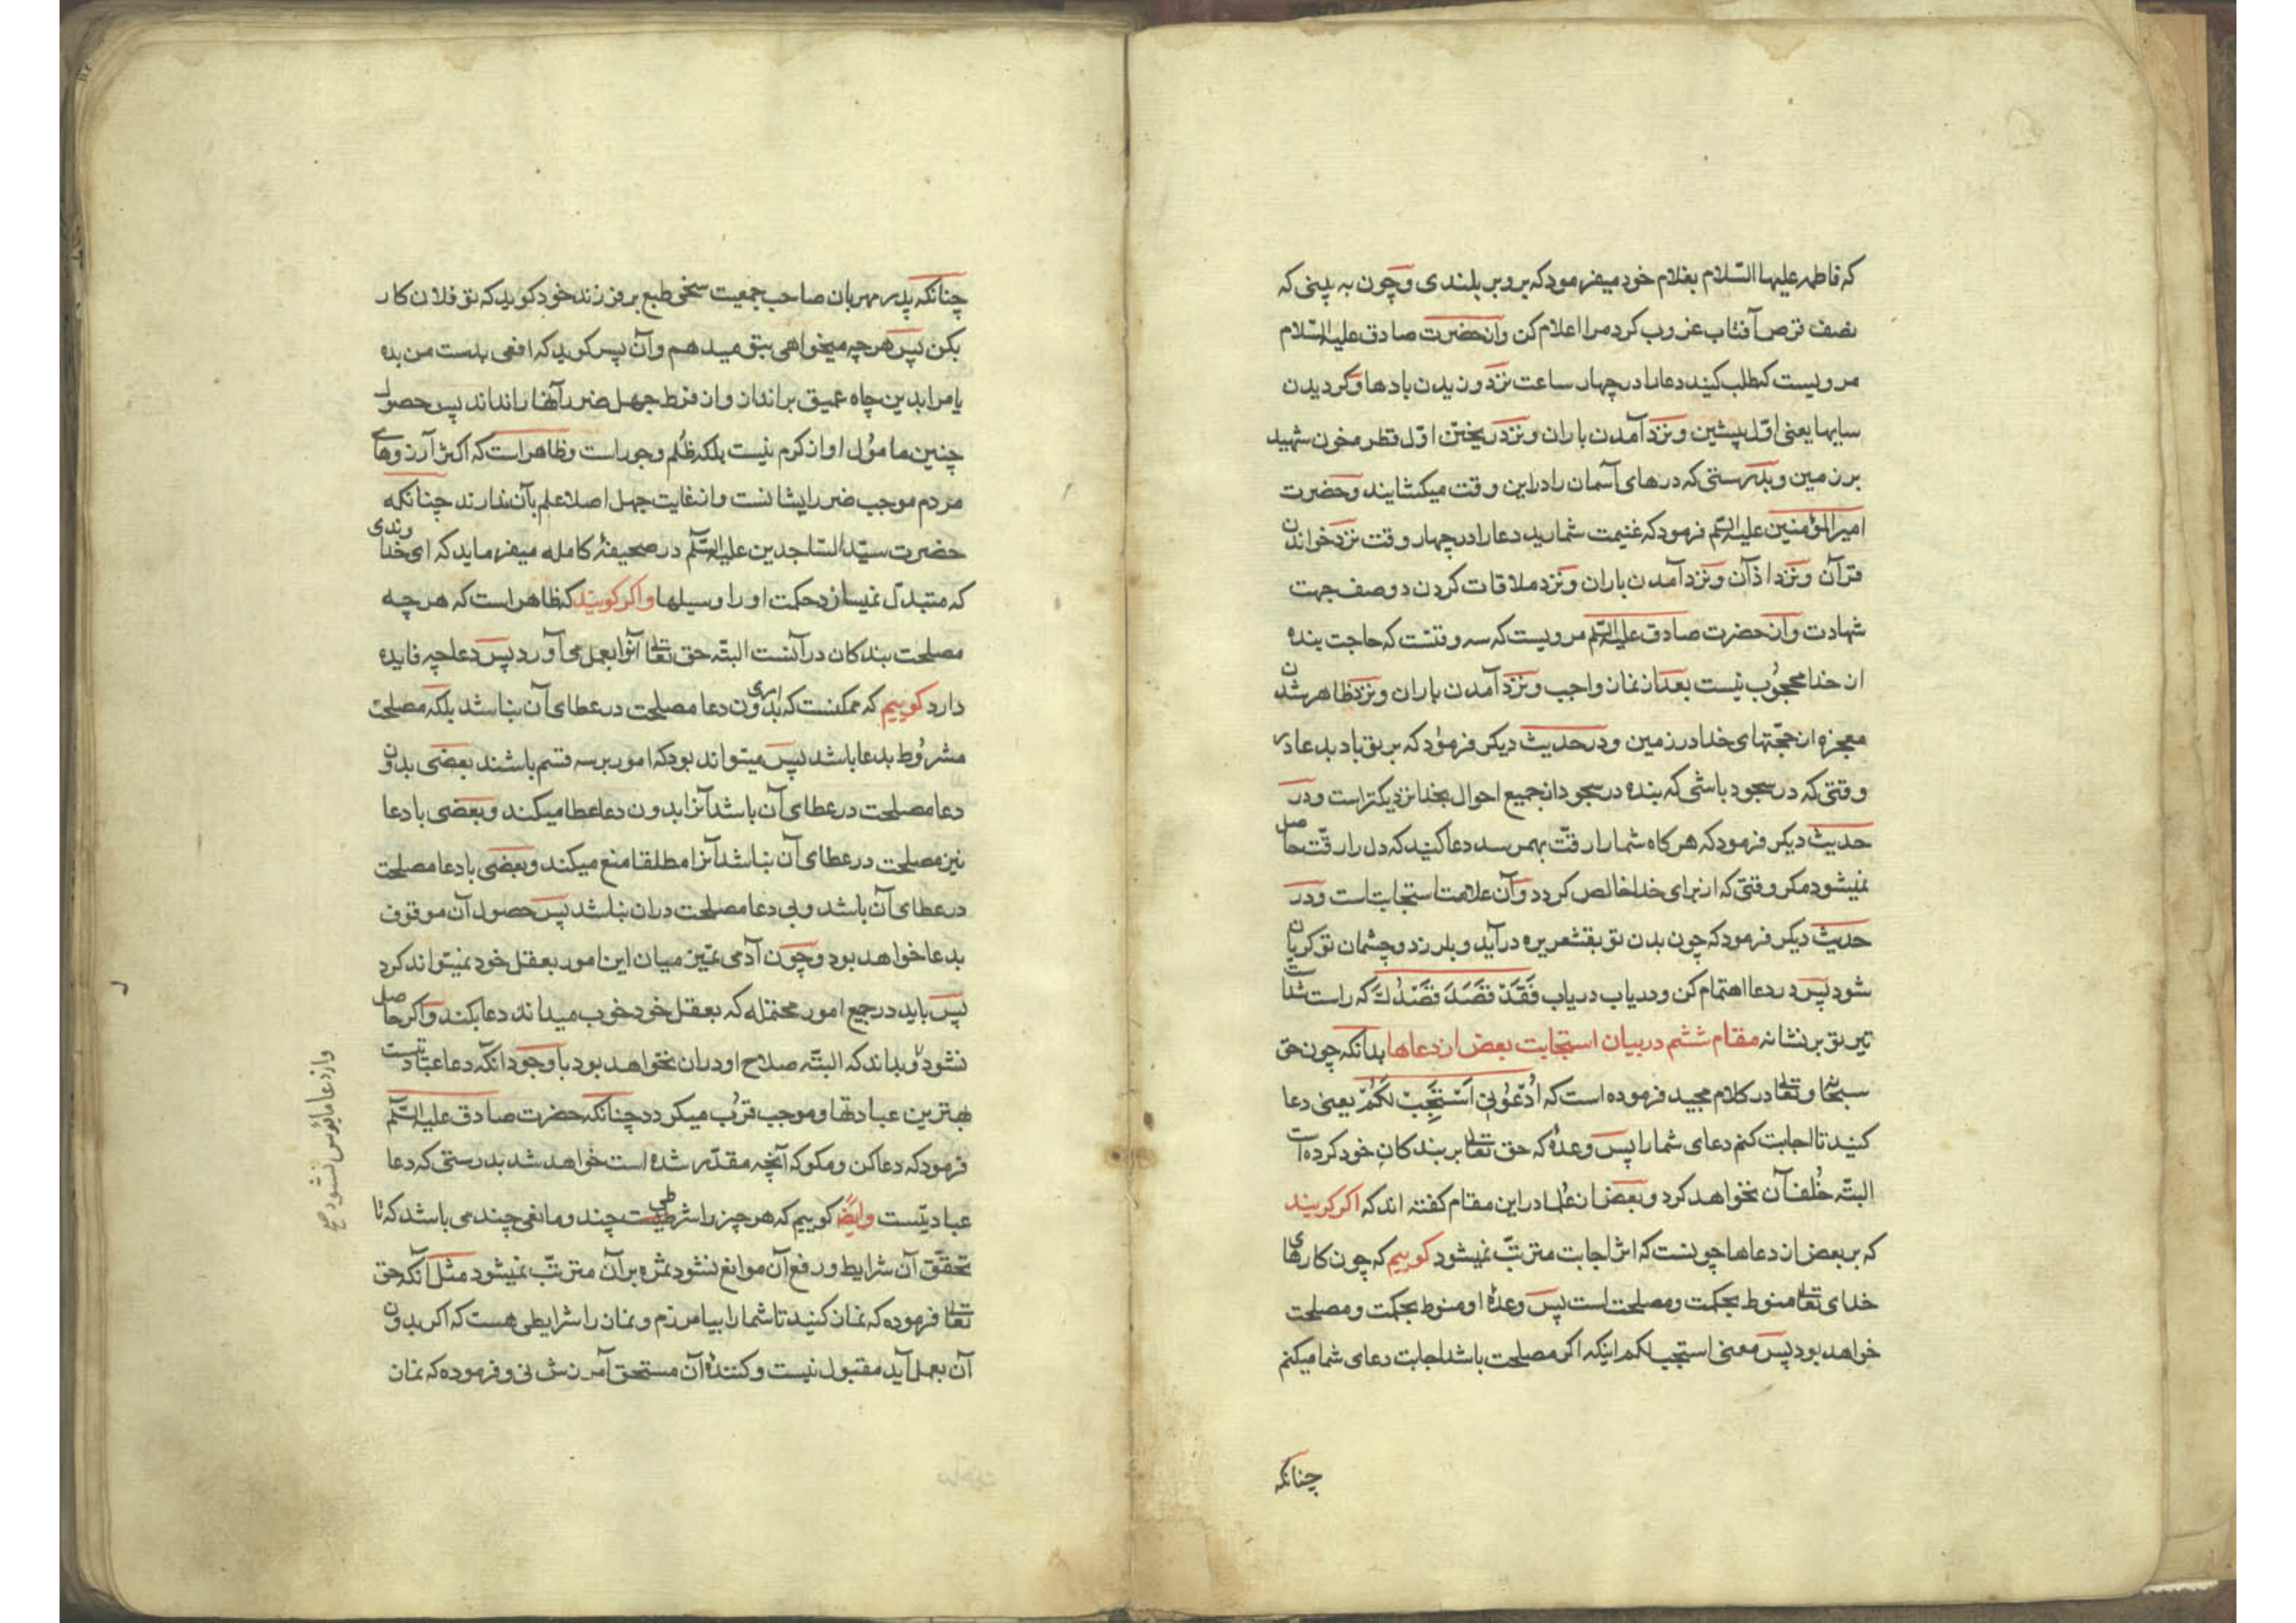 که فاطمه علیها السّلام بغلام خود میفرمود که برو بر بلندی و چون به بینی که
نصف قرص آفتاب غروب کرد مرا اعلام کن و از حضرت صادق علیه السّلام
مرویست که طلب کنید دعا را در چهار ساعت نزد وزیدن بادها و گردیدن
سایها یعنی اوّل پیشین و نزد آمدن باران و نزد ریختن اوّل قطره خون شهید
بر زمین و بدرستی که درهای آسمان را در این وقت میکشایند و حضرت
امیرالمؤمنین علیه السّلم فرمود که غنیمت شمارید دعا را در چهار وقت نزد خواندن
قرآن و نزد اذان و نزد آمدن باران و نزد ملاقات کردن دو صف جهت
شهادت و از حضرت صادق علیه السّلم مرویست که سه وقتست که حاجت بنده
از خدا محجوُب نیست بعد از نماز واجب و نزد آمدن باران و نزد ظاهر شدن
معجزه از حجّتهای خدا در زمین و در حدیث دیکر فرموُد که بر تو باد بدعا در
وقتی که در سجود باشی که بنده در سجود از جمیع احوال بخدا نزدیکتر است و در
حدیث دیکر فرمود که هر کاه شما را رقّت بهم رسد دعا کنید که دل را رقّت حاصل
نمیشود مکر وقتی که از برای خدا خالص کردد و آن علامت استجابت است و در
حدیث دیکر فرمود که چون بدن تو بقشعریره درآید و بلرزد و چشمان تو کریان
شود پس در دعا اهتمام کن و دریاب دریاب فَقَدْ قَصَدَ قَصْدُكَ که راست شده است
تیر تو بر نشانه مقام ششم در بیان استجابت بعض از دعاها بدانکه چون حق
سبحانه و تعالی در کلام مجید فرموده است که اُدْعُونی اَسْتَجِبْ لَکُمْ یعنی دعا
کنید تا اجابت کنم دعای شما را پس وعدهٔ که حق تعالی بر بندکان خود کرده است
البتّه خُلف آن نخواهد کرد و بعض از علما در این مقام کفته اند که اکر کویند
که بر بعض از دعاها چونست که اثر اجابت مترتّب نمیشود کوییم که چون کارهای
خدای تعالی منوط بحکمت و مصلحت است پس وعدهٔ او منوط بحکمت و مصلحت
خواهد بود پس معنی استجب لکم اینکه اکر مصلحت باشد اجابت دعای شما میکنم
چنانکه
چنانکه پدر مهربان صاحب جمعیت سخی طبع بر فرزند خود کوید که تو فلان کار
بکن پس هر چه میخواهی بتو میدهم و آن پسر کوید که افعی بدست من بده
یا مرا بدین چاه عمیق برانداز و از فرط جهل ضرر آنها را نداند پس حصول
چنین مامؤل او از کرم نیست بلکه ظُلم و جور است و ظاهر است که اکثر آرزوهای
مردم موجب ضرر ایشانست و از غایت جهل اصلا علم بآن ندارند چنانکه
حضرت سیّد السّاجدین علیه السّلم در صحیفهٔ کامله میفرماید که ای خداوندی
که متبدّل نمیسازد حکمت او را وسیلها و اکر کویند که ظاهر است که هر چه
مصلحت بندکان در آنست البتّه حق تعالی آنرا بعمل می آورد پس دعا چه فایده
دارد کوییم که ممکنست که امری بدون دعا مصلحت در عطای آن نباشد بلکه مصلحت
مشروُط بدعا باشد پس میتواند بود که امور بر سه قسم باشند بعضی بدون
دعا مصلحت در عطای آن باشد آنرا بدون دعا عطا میکند و بعضی با دعا
نیز مصلحت در عطای آن نباشد آنرا مطلقا منع میکند و بعضی با دعا مصلحت
در عطای آن باشد و بی دعا مصلحت در ان نباشد پس حصول آن موقوف
بدعا خواهد بود و چون آدمی تمیّز میان این امور بعقل خود نمیتواند کرد
پس باید در جمیع امور محتمله که بعقل خود خوب میداند دعا بکند و اکر حاصل
نشود و بداند که البتّه صلاح او در ان نخواهد بود با وجود آنکه دعا عبادتست
بهترین عبادتها و موجب قرُب میکردد چنانکه حضرت صادق علیه السّلم
فرمود که دعا کن و مکو که آنچه مقدّر شده است خواهد شد بدرستی که دعا
عبادتیست وایضًا کوییم که هر چیز را شرطی چند و مانعی چند می باشد که تا
تحقّق آن شرایط و رفع آن موانع نشود ثمره بر آن مترتّب نمیشود مثل آنکه حق
تعالی فرموده که نماز کنید تا شما را بیامرزم و نماز را شرایطی هست که اکر بدون
آن بعمل آید مقبول نیست و کنندهٔ آن مستحق آمرزش نی و فرموده که نماز
و از دعا مایُوس نشود صح